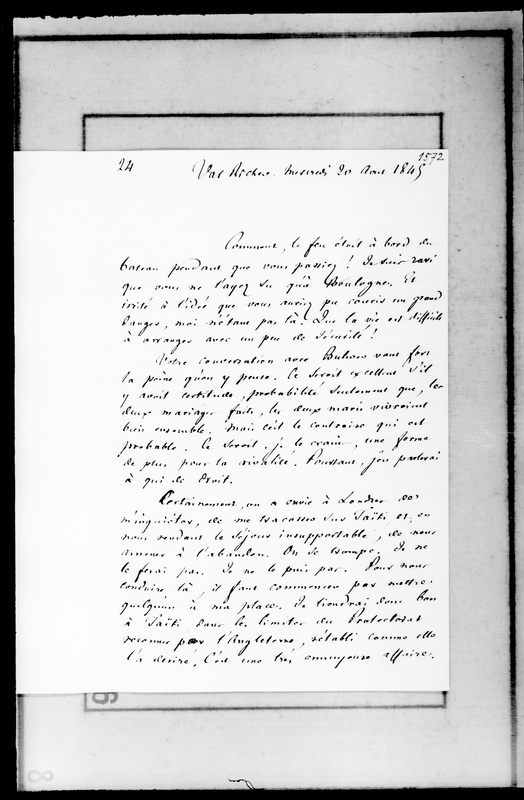 24 1572
Val Richer. Mercredi 20 Aout 1845
Comment, le feu était à bord du
bateau pendant que vous passiez ! Je suis ravi
que vous ne l'ayez su qu'à Boulogne. Et
irrité à l'idée que vous auriez pu courir un grand
danger, moi n'étant pas là ! Que la vie est difficile
à arranger avec un peu de sécurité !
Votre conversation avec Bulwer vaut fort
la peine qu'on y pense. Ce seroit excellent s'il
y avoit certitude, probabilité seulement que, les
deux mariages faits, les deux maris vivroient
bien ensemble. Mais c'est le contraire qui est
probable. Ce seroit, je le crains, une forme
de plus pour la rivalité. Pourtant, j'en parlerai
à qui de droit.
Certainement, on a envie à Londres de
m'inquiéter, de me tracasser sur Taïti, et, en
nous rendant le séjour insupportable, de nous
amener à l'abandon. On se trompe. Je ne
le ferai pas. Je ne le puis pas. Pour nous
conduire là, il faut commencer par mettre
quelqu'un à ma place. Je tiendrai donc bon
à Taïti, dans les limites du Protectorat
reconnu par l'Angleterre, rétabli comme elle
l'a désiré. C'est une très ennuyeuse affaire.